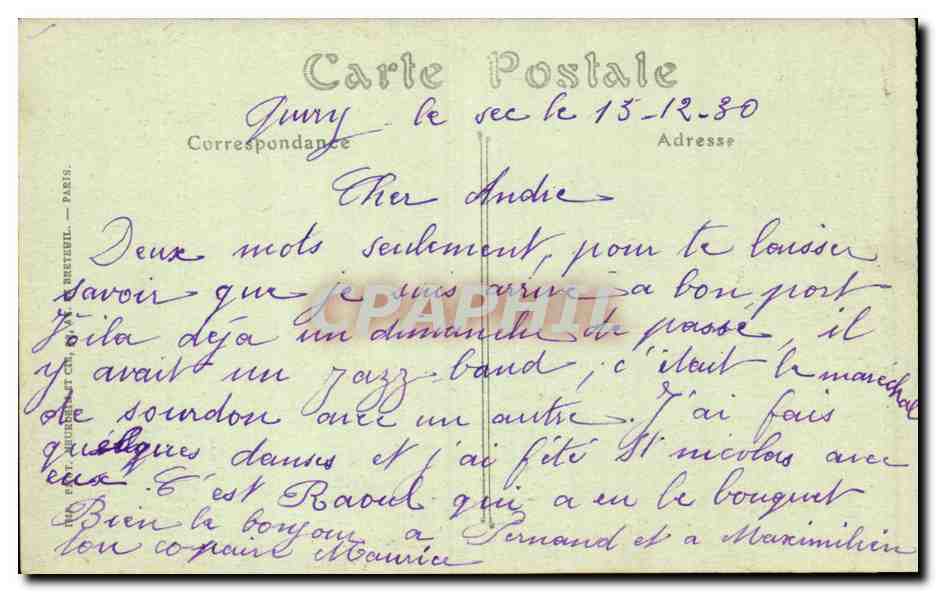 Carte Postale
Quiry le sec le 15-12-30
Correspondance
Adresse
Cher André
Deux mots seulement, pour te laisser
savoir que je suis arrivé a bon port
Voila déja un dimanche de passé, il
y avait un jazz-band, c'était le maréchal
de sourdon avec un autre. J'ai fais
quelques danses et j'ai fété St nicolas avec
eux. C'est Raoul qui a eu le bouquet
Bien le bonjour a Fernand et a Maximilien
ton copain Maurice
BRETEUIL. — PARIS.
CPAPHIL